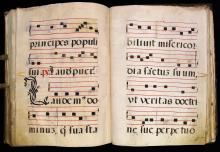 principes populi
sui. ps Laudate puer.
Laudemus do
minũ, q̃ sua sta
bilivit misericor
dia factus suum,
ut veritas doctri
ne suc perpetuo